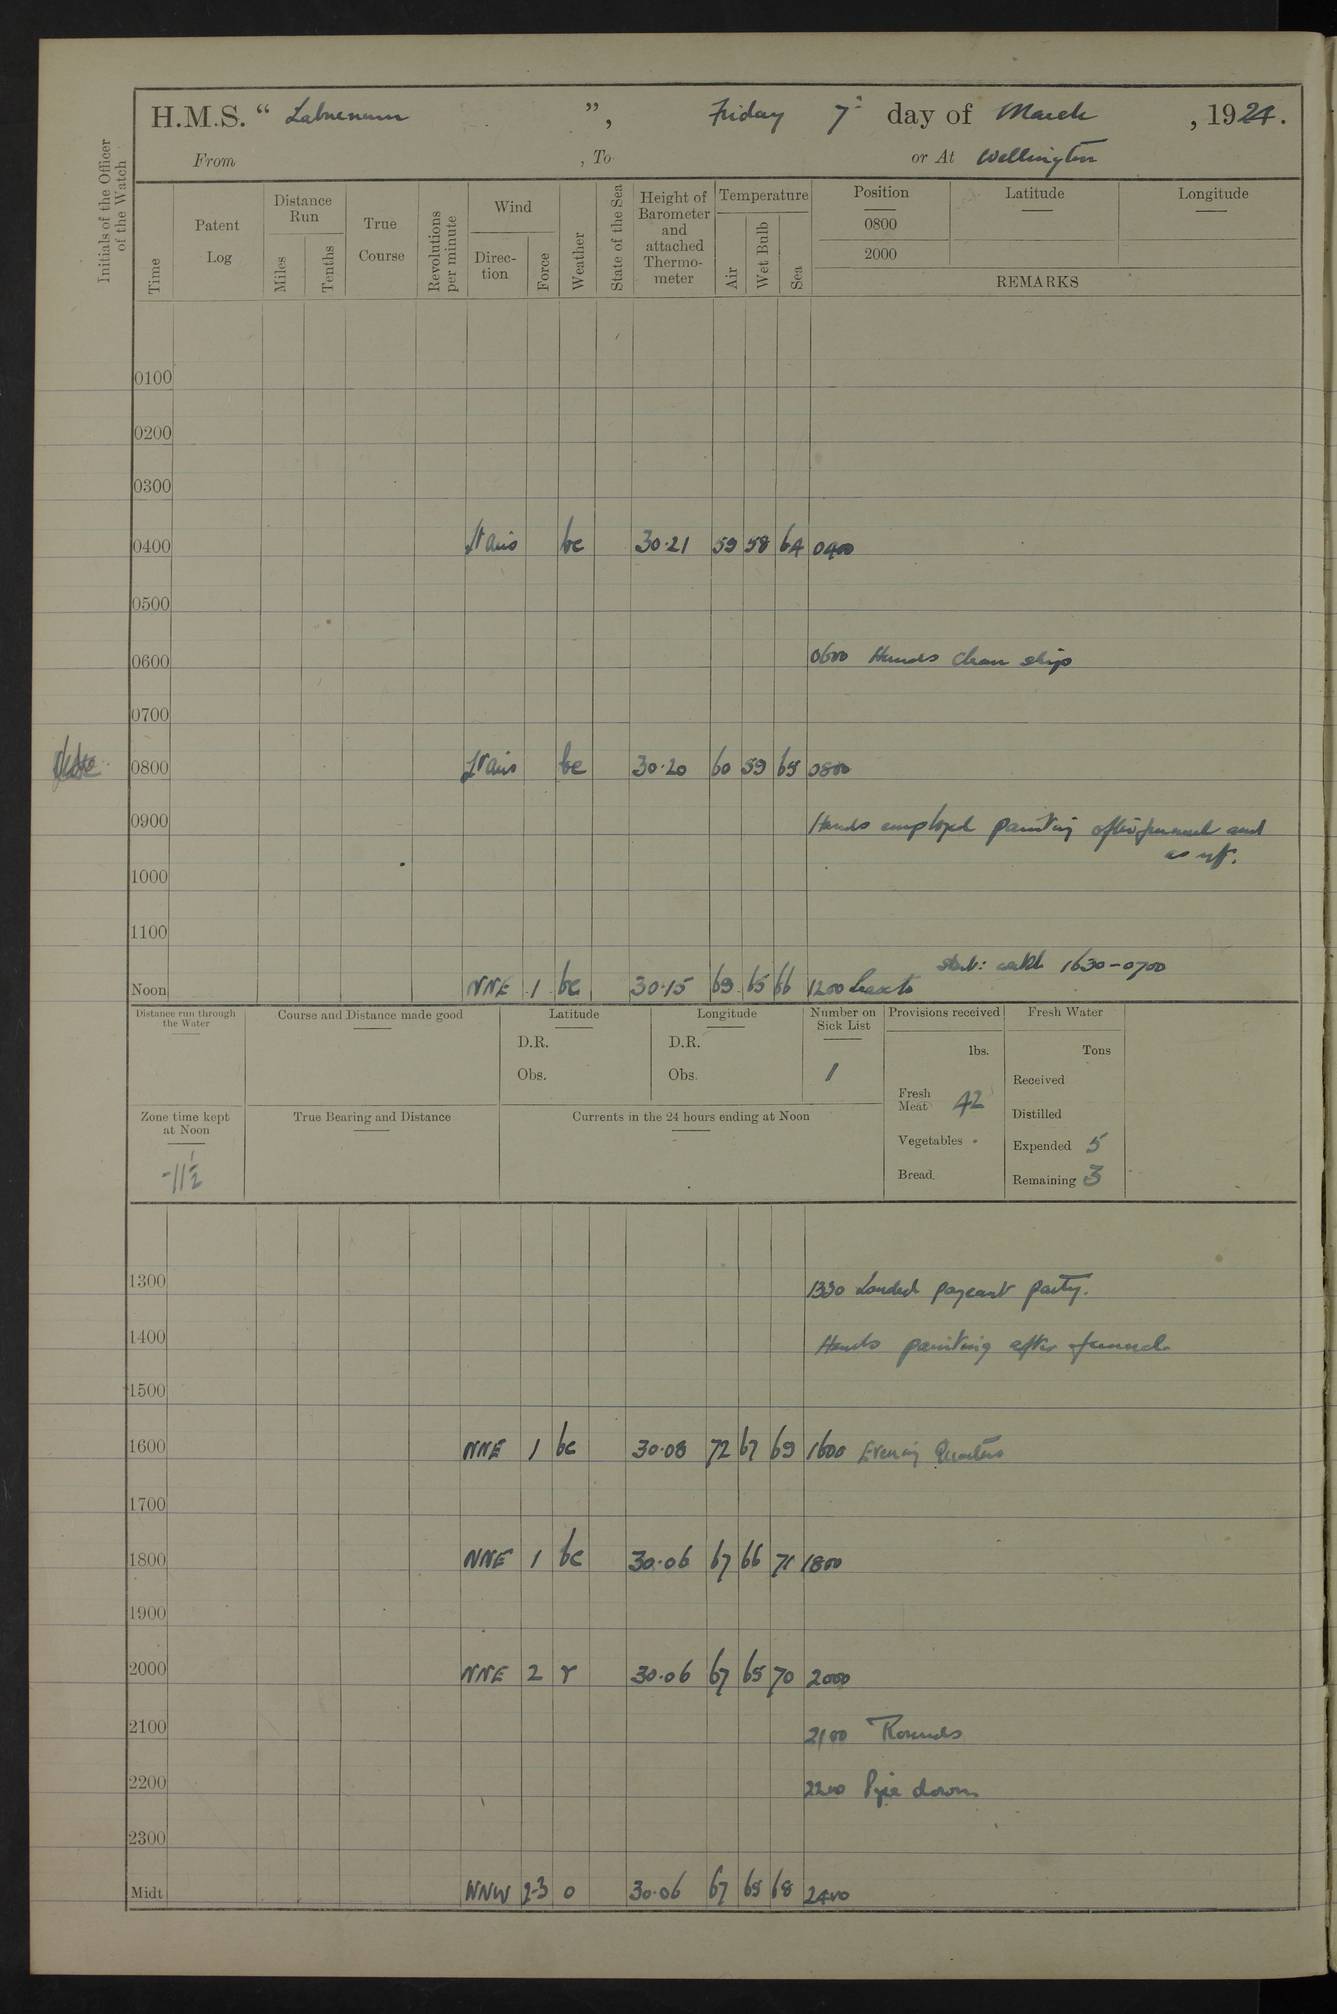 H.M.S. “ Laburnum ”, Friday 7th day of March , 1924.
From , To or At Wellington
Initials of the Officer of the Watch
Time
Patent Log
Distance Run
Miles
Tenths
True Course
Revolutions per minute
Wind
Direc-tion
Force
Weather
State of the Sea
Height of Barometer and attached Thermo-meter
Temperature
Air
Wet Bulb
Sea
Position Latitude Longitude
0800
2000
REMARKS
0100
0200
0300
0400 Lt airs bc 30.21 59 58 64 0400
0500
0600 0600 Hands clean ship
0700
0800 Lt airs bc 30.20 60 59 65 0800
0900 Hands employed painting after funnel and
as req.
1000
1100
1630-0700
Noon NNE 1 bc 30.15 69 65 66 1200
Distance run through the Water
Course and Distance made good
Latitude
D.R.
Obs.
Longitude
D.R.
Obs.
Number on Sick List
1
Provisions received
lbs.
Fresh Meat 42
Vegetables
Bread
Fresh Water
Tons
Received
Distilled
Expended 5
Remaining 3
Zone time kept at Noon
-11½
True Bearing and Distance
Currents in the 24 hours ending at Noon
1300 1330 Landed pageant party.
1400 Hands painting after funnel
1500
1600 NNE 1 bc 30.08 72 67 69 1600 Evening Quarters
1700
1800 NNE 1 bc 30.06 67 66 71 1800
1900
2000 NNE 2 r 30.06 67 65 70 2000
2100 2100 Rounds
2200 2200 Pipe down
2300
Midt WNW 2-3 o 30.06 67 65 68 2400